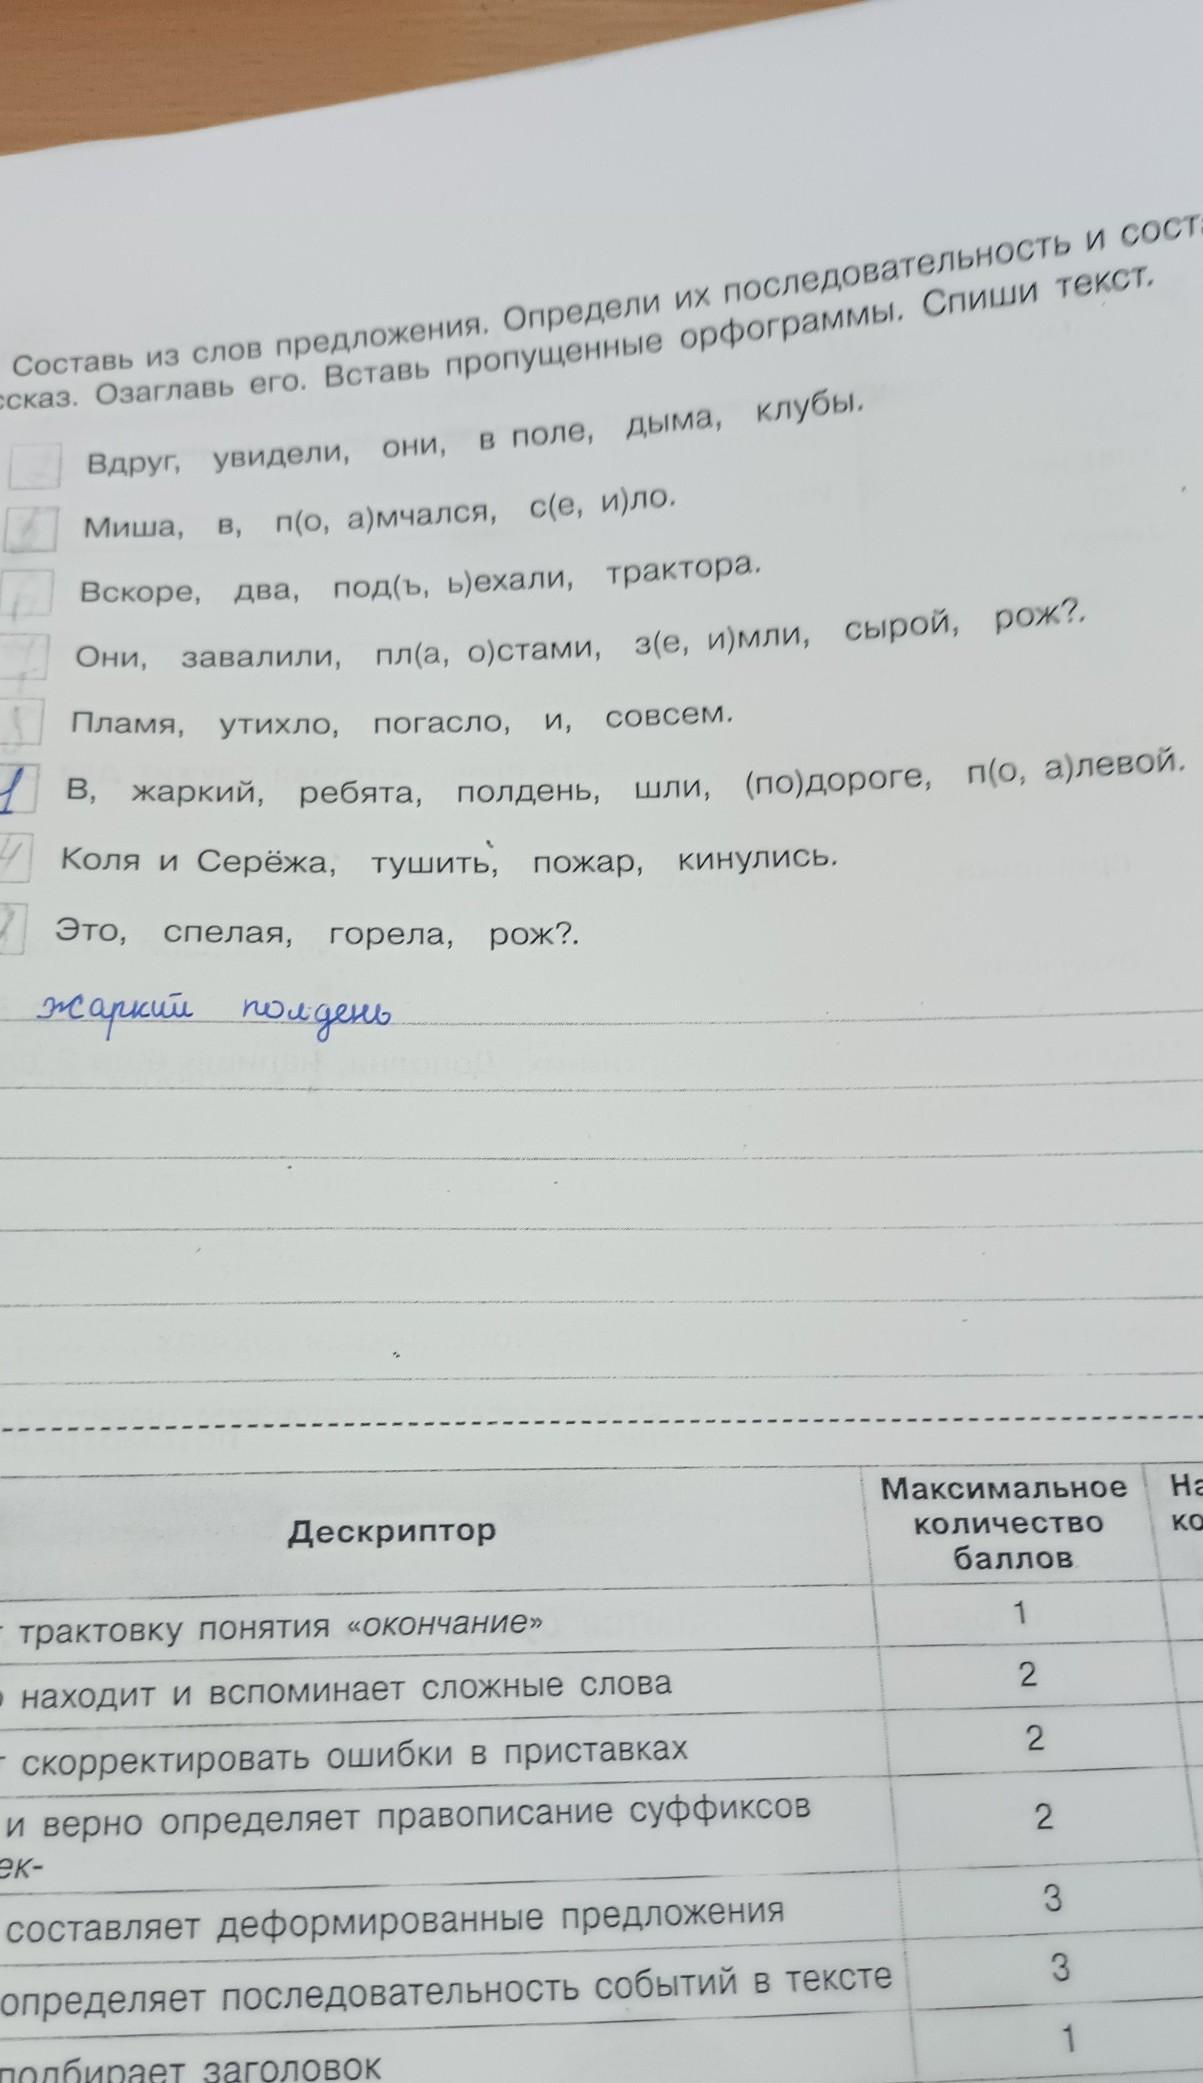 Составь из слов предложения. Определи их последовательность и соста
ссказ. Озаглавь его. Вставь пропущенные орфограммы. Спиши текст.
Вдруг, увидели, они, в поле, дыма, клубы.
Миша, в, п(о, а)мчался, с(е, и)ло.
Вскоре, два, под(ъ, ь)ехали, трактора.
Они, завалили, пл(а, о)стами, з(е, и)мли, сырой, рож?.
Пламя, утихло, погасло, и, совсем.
1 В, жаркий, ребята, полдень, шли, (по)дороге, п(о, а)левой.
4 Коля и Серёжа, тушить, пожар, кинулись.
Это, спелая, горела, рож?.
жаркий полдень
Дескриптор Максимальное количество баллов На ко
т трактовку понятия «окончание» 1
о находит и вспоминает сложные слова 2
т скорректировать ошибки в приставках 2
и верно определяет правописание суффиксов 2
ек-
составляет деформированные предложения 3
определяет последовательность событий в тексте 3
подбирает заголовок 1